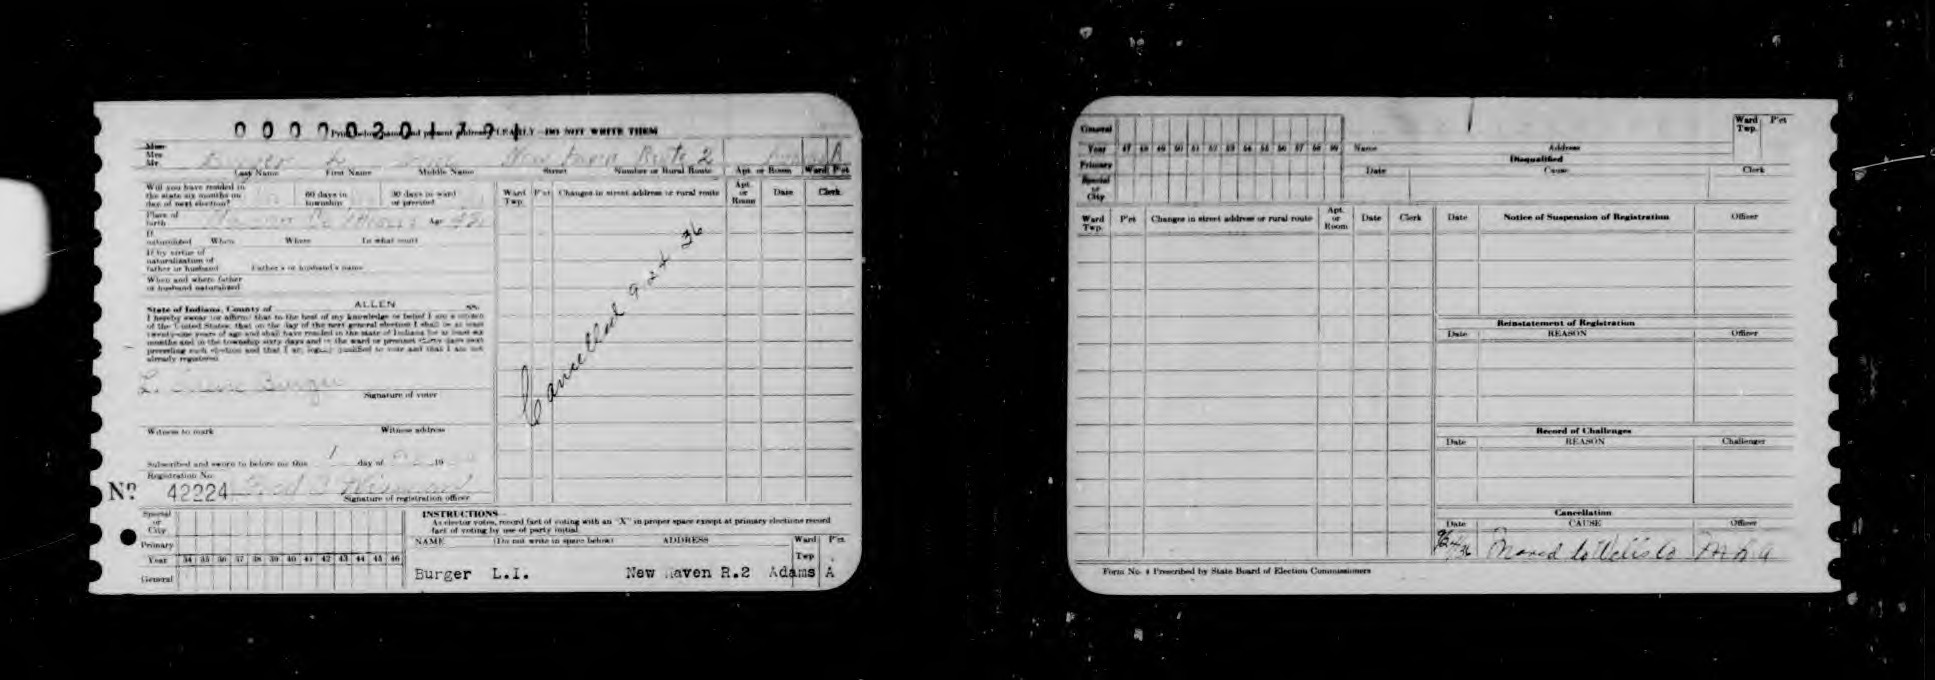 0 0 0 0 0 2 0 1 7 9 1
DO NOT WRITE THEM
Miss
Mrs
Mr.
Burger L. New Haven Route 2 Adams A
Last Name First Name Middle Name Street Number or Rural Route Apt. or Room Ward P'ct
Will you have resided in
the state six months on
day of next election?
60 days in
township
30 days in ward
or precinct
Place of
birth
Co Illinois Age
If
naturalized When Where In what court
If by virtue of
naturalization of
father or husband Father's or husband's name
When and where father
or husband naturalized
State of Indiana, County of ALLEN ss:
I hereby swear (or affirm) that to the best of my knowledge or belief I am a citizen
of the United States; that on the day of the next general election I shall be at least
twenty-one years of age and shall have resided in the state of Indiana for at least six
months and in the township sixty days and in the ward or precinct thirty days next
preceding such election and that I am legally qualified to vote and that I am not
already registered
L. Burger
Signature of voter
Witness to mark Witness address
Subscribed and sworn to before me this 1 day of 19
Registration No.
Nº 42224 Fred
Signature of registration officer
Ward
Twp.
P'ct Changes in street address or rural route
Apt.
or
Room
Date Clerk
Cancelled 9-24-36
Special
or
City
Primary
Year 34 35 36 37 38 39 40 41 42 43 44 45 46
General
INSTRUCTIONS—
As elector votes, record fact of voting with an "X" in proper space except at primary elections record
fact of voting by use of party initial.
NAME (Do not write in space below) ADDRESS Ward P'ct
Twp
Burger L.I. New Haven R.2 Adams A
General
Year 47 48 49 50 51 52 53 54 55 56 57 58 59
Primary
Special
or
City
Name Address
Ward
Twp.
P'ct
Disqualified
Date Cause Clerk
Ward
Twp.
P'ct Changes in street address or rural route
Apt.
or
Room
Date Clerk
Date Notice of Suspension of Registration Officer
Reinstatement of Registration
Date REASON Officer
Record of Challenges
Date REASON Challenger
Cancellation
Date CAUSE Officer
9/24/36 Moved to Wells Co
Form No. 4 Prescribed by State Board of Election Commissioners